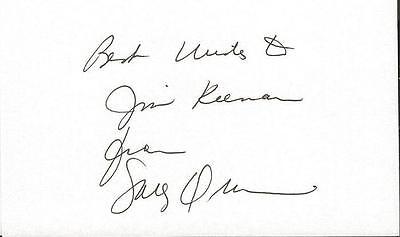 Best Wishes to
Jim Keenan
from